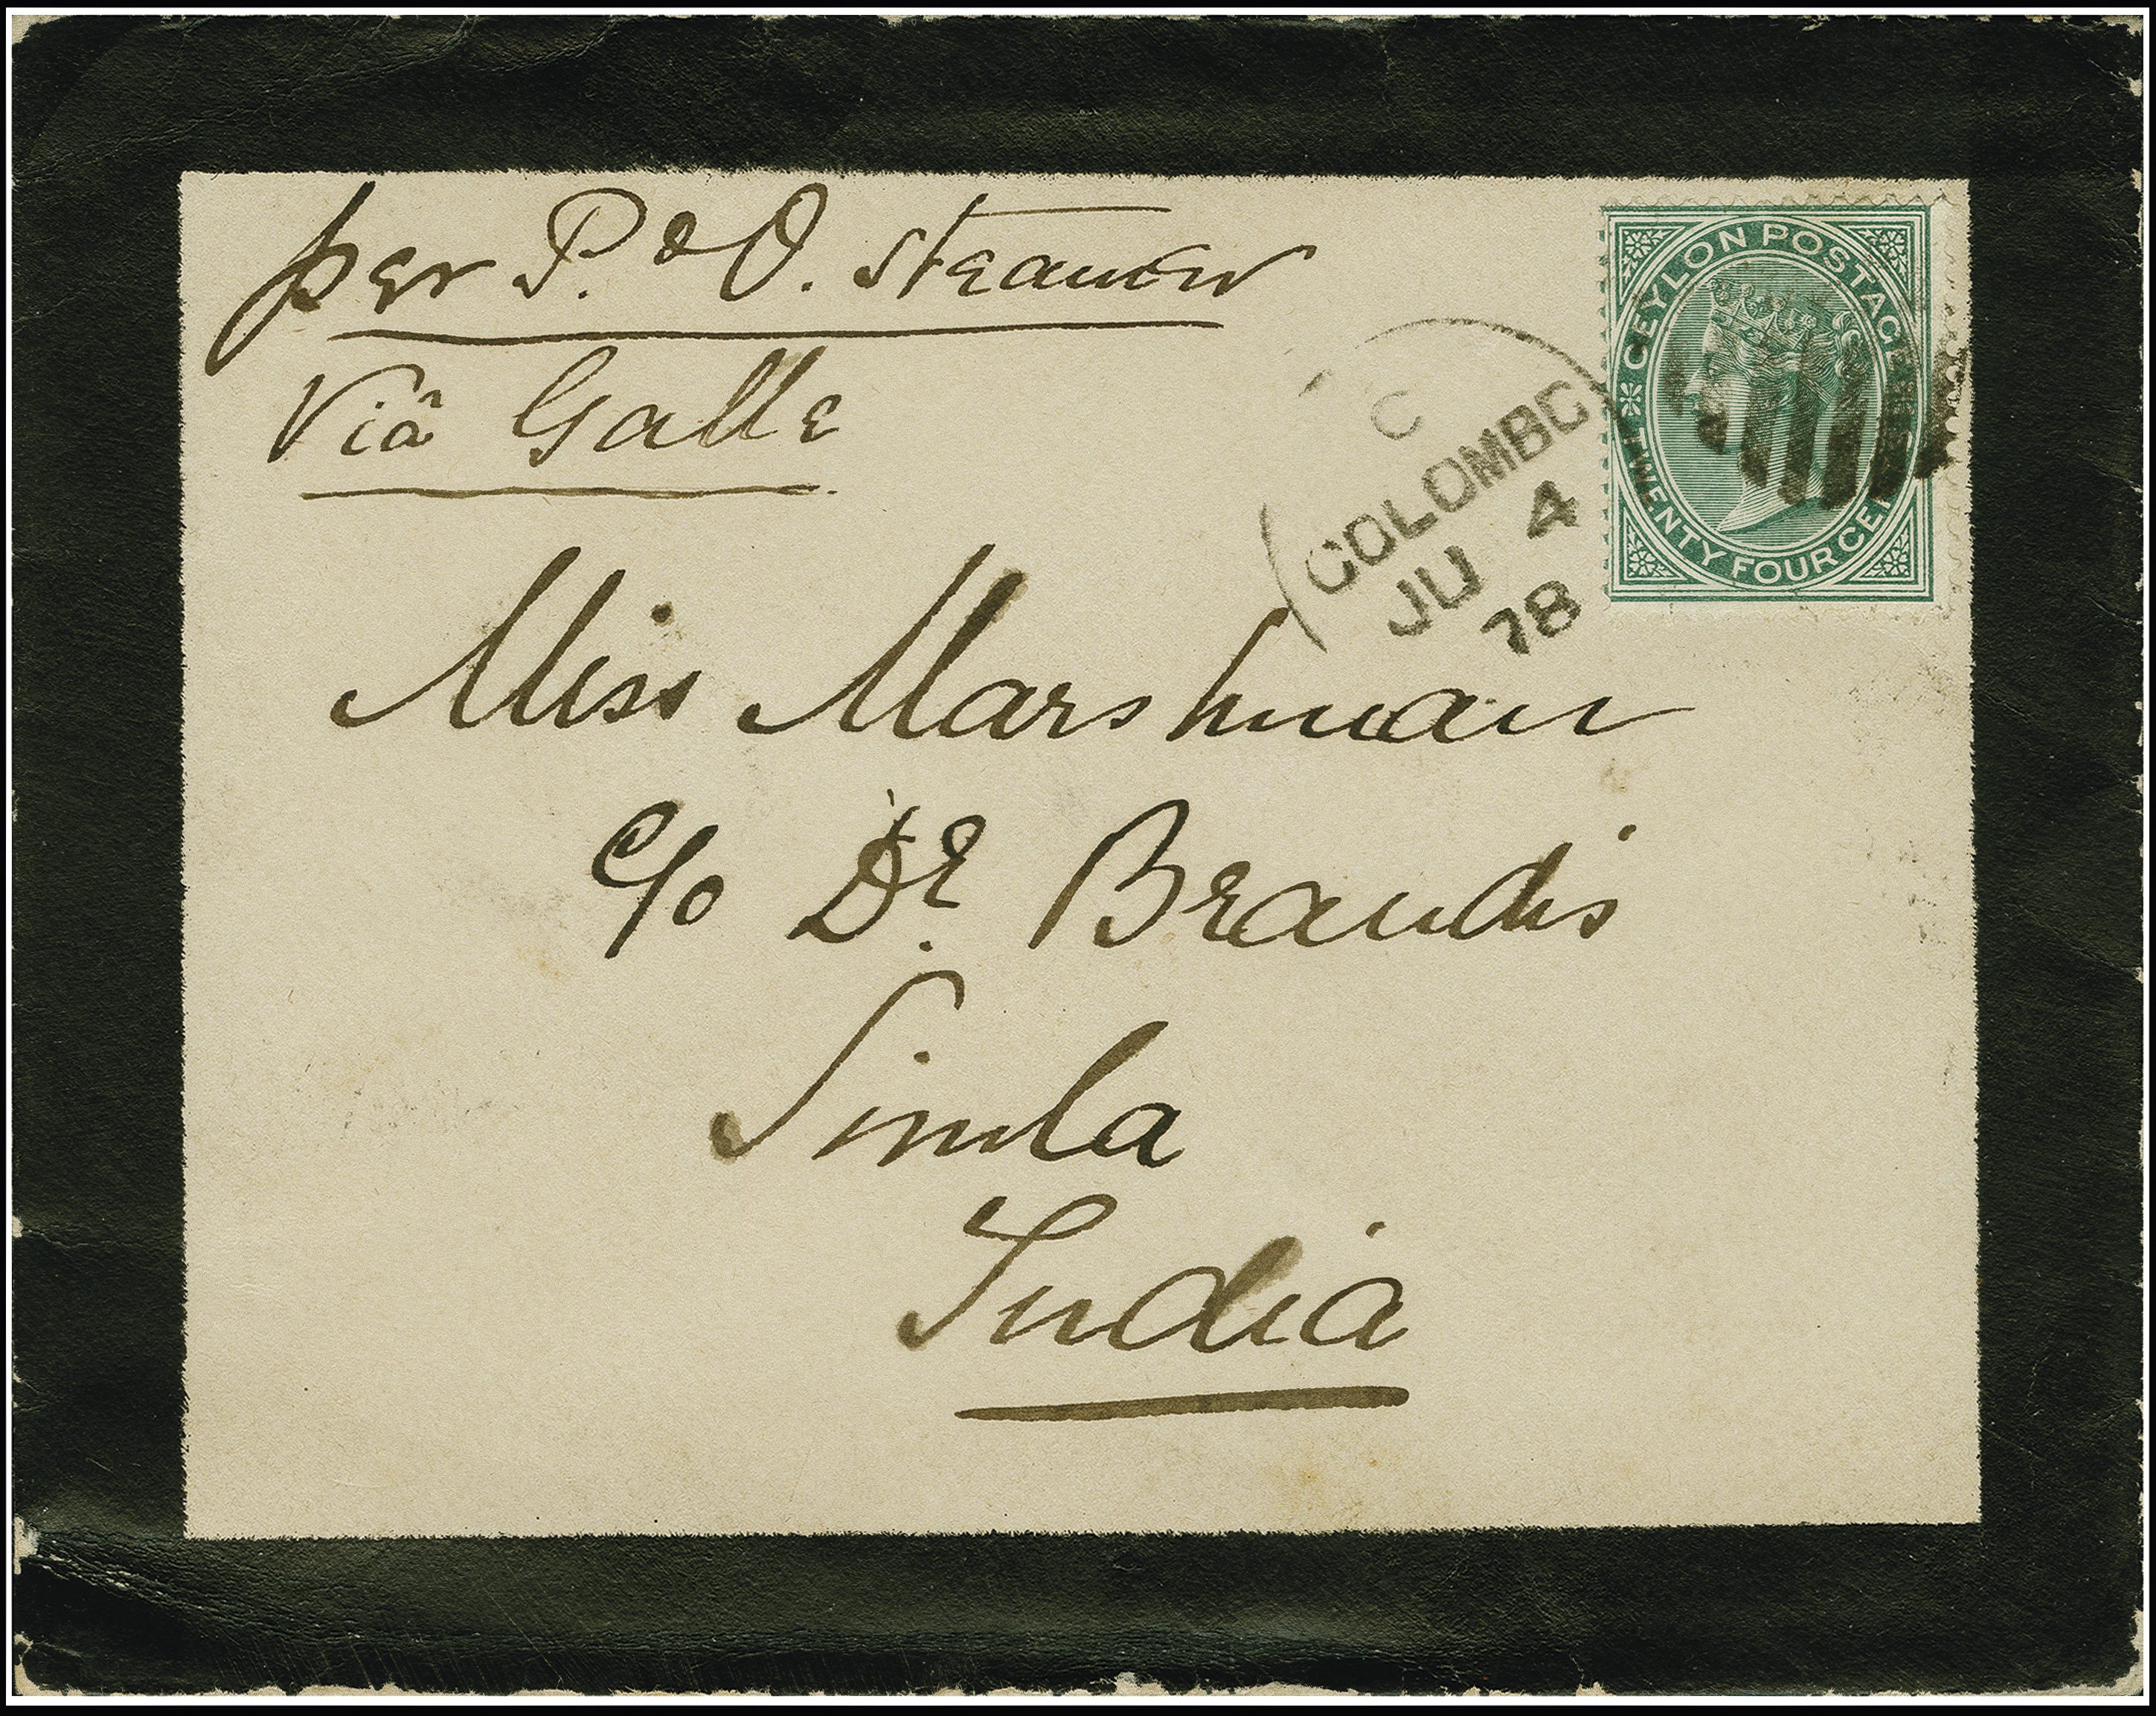 per P. & O. Steamer
Viâ Galle
CEYLON POSTAGE
TWENTY FOUR CEN
C
COLOMBO
JU 4
78
Miss Marshman
c/o Dr. Brandis
Simla
India